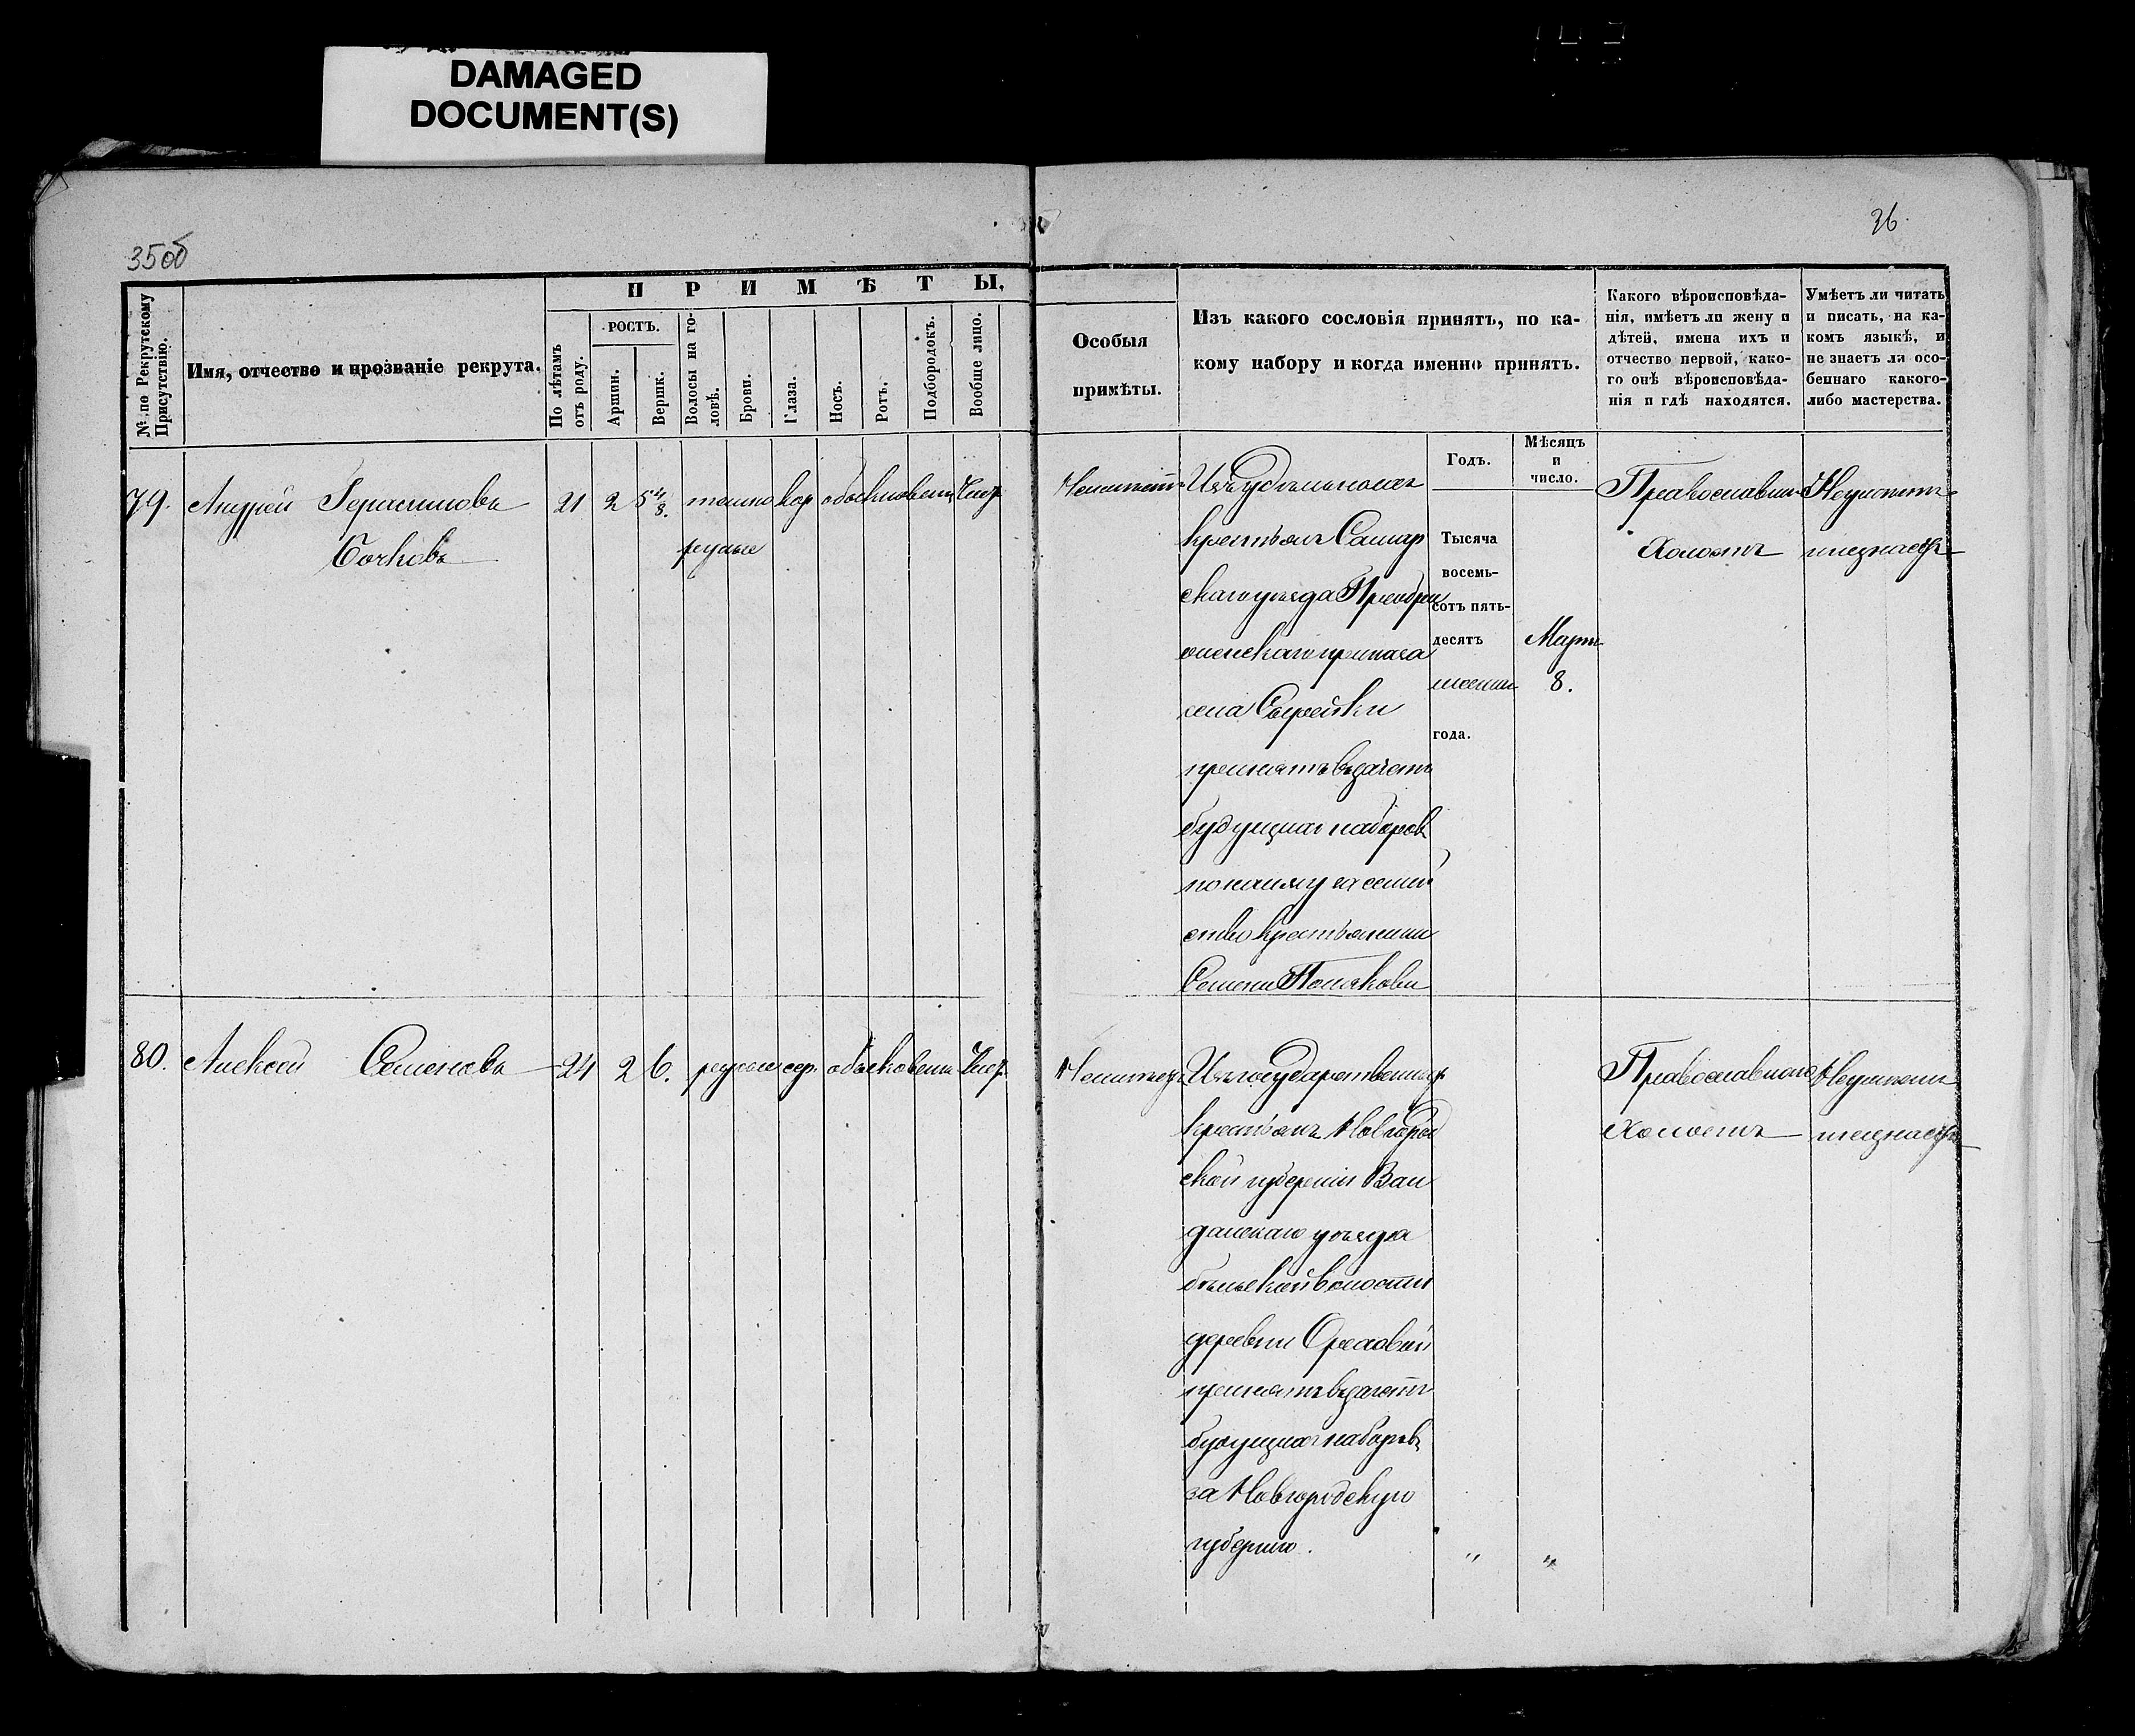 DAMAGED
DOCUMENT(S)
35об
36.
№ по Рекрутскому Присутствію.
Имя, отчество и прозваніе рекрута.
ПРИМѢТЫ.
По лѣтамъ отъ роду.
РОСТЪ.
Аршин.
Вершк.
Волосы на головѣ.
Брови.
Глаза.
Носъ.
Ротъ.
Подбородокъ.
Вообще лицо.
Особыя
примѣты.
Изъ какого сословія принятъ, по ка-
кому набору и когда именно принятъ.
Какого вѣроисповѣда-
нія, имѣетъ ли жену и
дѣтей, имена ихъ и
отчество первой, како-
го онѣ вѣроисповѣда-
нія и гдѣ находятся.
Умѣетъ ли читать
и писать, на ка-
комъ языкѣ, и
не знаетъ ли осо-
беннаго какого-
либо мастерства.
Годъ.
Мѣсяцъ
и
число.
79. Андрей Герасимовъ 21 2 5 4/8. темно кар обыкновен Чист
Бочковъ
русые
Неимѣетъ
Изъ удѣльныхъ
крестьянъ Самар
скаго уѣзда Преобра
женскаго приказа
села Сырейки
принятъ въ зачетъ
будущихъ наборовъ
по найму за семей
ство крестьянина
Семена Полякова
Тысяча
восемь-
сотъ пять-
десятъ
года.
Март
8.
Православн
Холостъ
Неумѣетъ
инезнаетъ
80. Алексей Семеновъ 24 2 6. русые сер. обыковенн Чист
Неимѣет
Изъ государственных
крестьянъ Новгород
ской губерніи Вал
дайскаго уѣзда
волости
деревни Ореховки
принятъ въ зачетъ
будущихъ наборовъ
за Новгородскую
губернію.
" "
Православнаго
Холостъ
Неумѣетъ
инезнаетъ